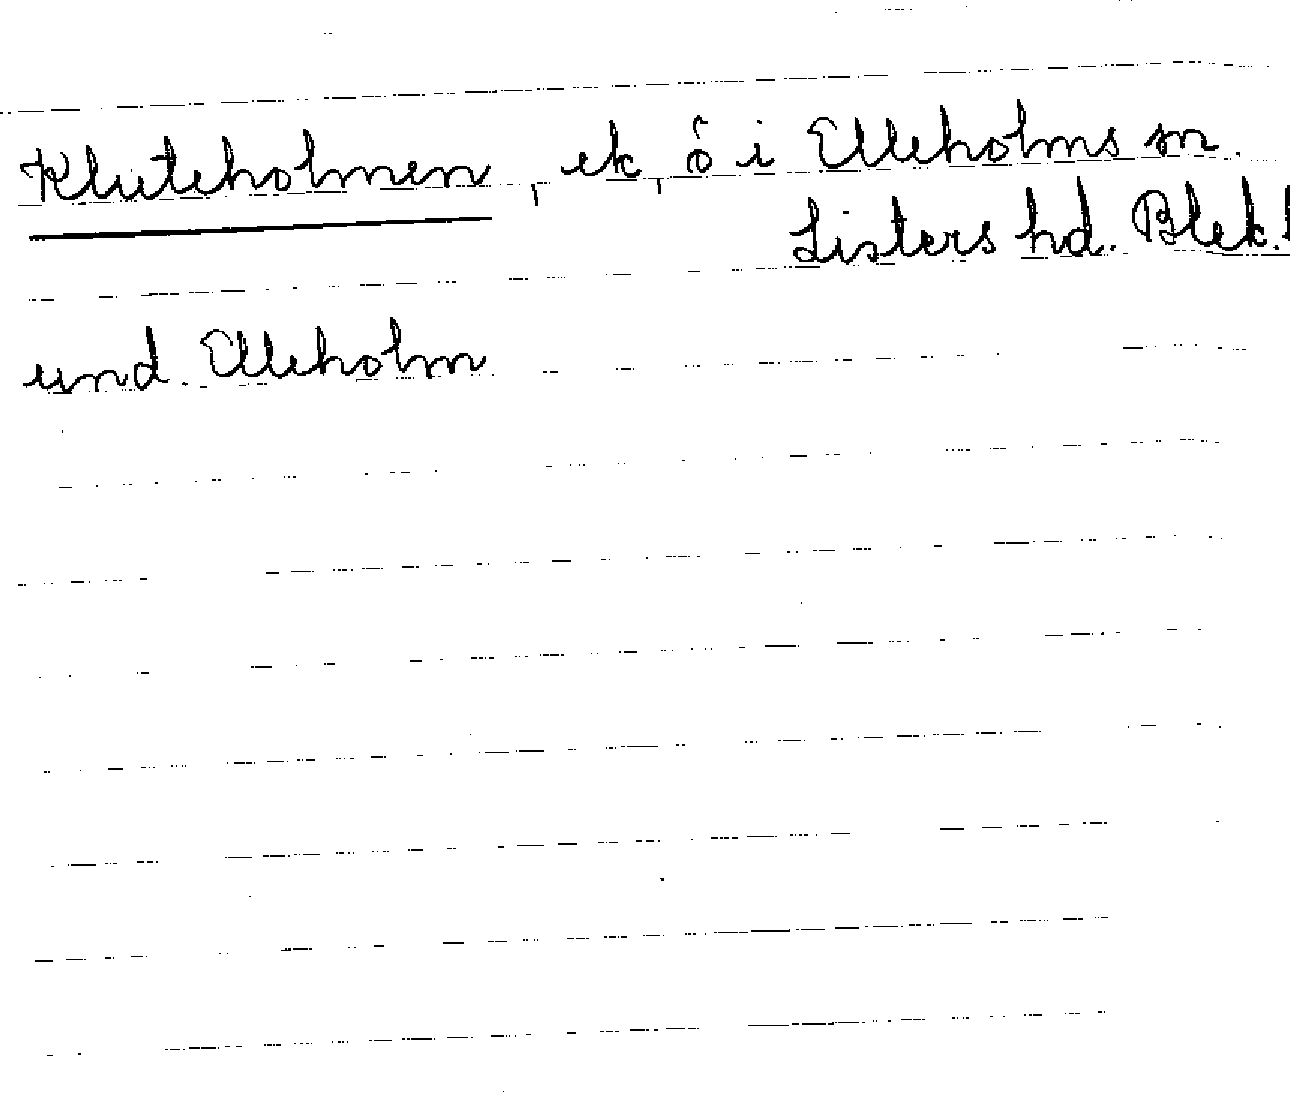 Kluteholmen, ek, ö i Elleholms sn.
Listers hd. Blek. l
und. Elleholm